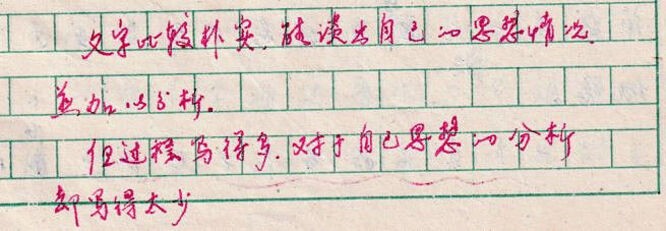 文字比较朴实,能谈出自己的思想情况
并加以分析.
但过程写得多.对于自己思想的分析
却写得太少